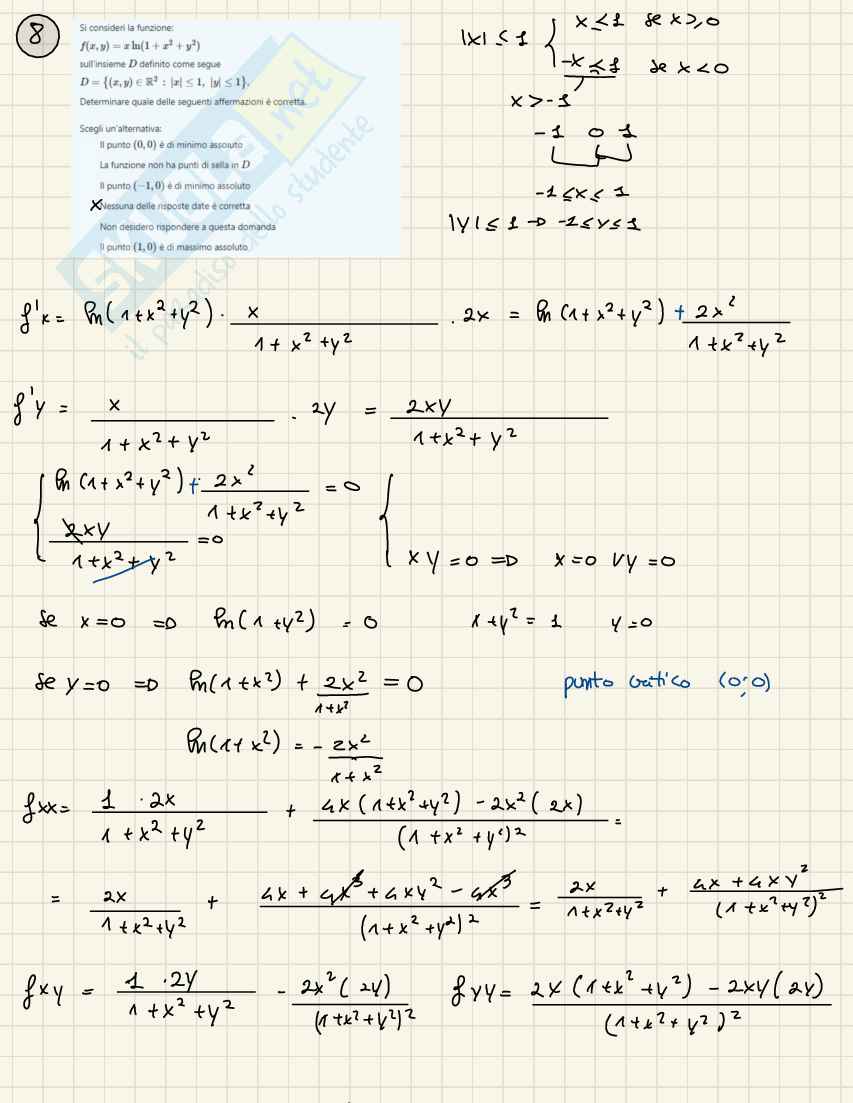 8
Si consideri la funzione:
f(x, y) = x ln(1 + x² + y²)
sull'insieme D definito come segue
D = {(x, y) ∈ ℝ² : |x| ≤ 1, |y| ≤ 1}.
Determinare quale delle seguenti affermazioni è corretta.
Scegli un'alternativa:
Il punto (0, 0) è di minimo assoluto
La funzione non ha punti di sella in D
Il punto (−1, 0) è di minimo assoluto
X Nessuna delle risposte date è corretta
Non desidero rispondere a questa domanda
Il punto (1, 0) è di massimo assoluto
SKUOLA.net
il paradiso dello studente
|x| ≤ 1 { x ≤ 1 se x ≥ 0
-x ≤ 1 se x < 0
x > -1
-1 0 1
-1 ≤ x ≤ 1
|y| ≤ 1 → -1 ≤ y ≤ 1
f'x = ln(1+x²+y²) · x/(1+x²+y²) · 2x = ln(1+x²+y²) + 2x²/(1+x²+y²)
f'y = x/(1+x²+y²) · 2y = 2xy/(1+x²+y²)
{ ln(1+x²+y²) + 2x²/(1+x²+y²) = 0 {
2xy/(1+x²+y²) = 0 xy = 0 => x=0 ∨ y=0
se x=0 => ln(1+y²) = 0 1+y² = 1 y=0
se y=0 => ln(1+x²) + 2x²/(1+x²) = 0 punto critico (0;0)
ln(1+x²) = - 2x²/(1+x²)
fxx = 1 · 2x/(1+x²+y²) + (4x(1+x²+y²) - 2x²(2x))/(1+x²+y²)² =
= 2x/(1+x²+y²) + (4x + 4x³ + 4xy² - 4x³)/(1+x²+y²)² = 2x/(1+x²+y²) + (4x + 4xy²)/(1+x²+y²)²
fxy = 1 · 2y/(1+x²+y²) - 2x²(2y)/(1+x²+y²)² fyy = (2x(1+x²+y²) - 2xy(2y))/(1+x²+y²)²